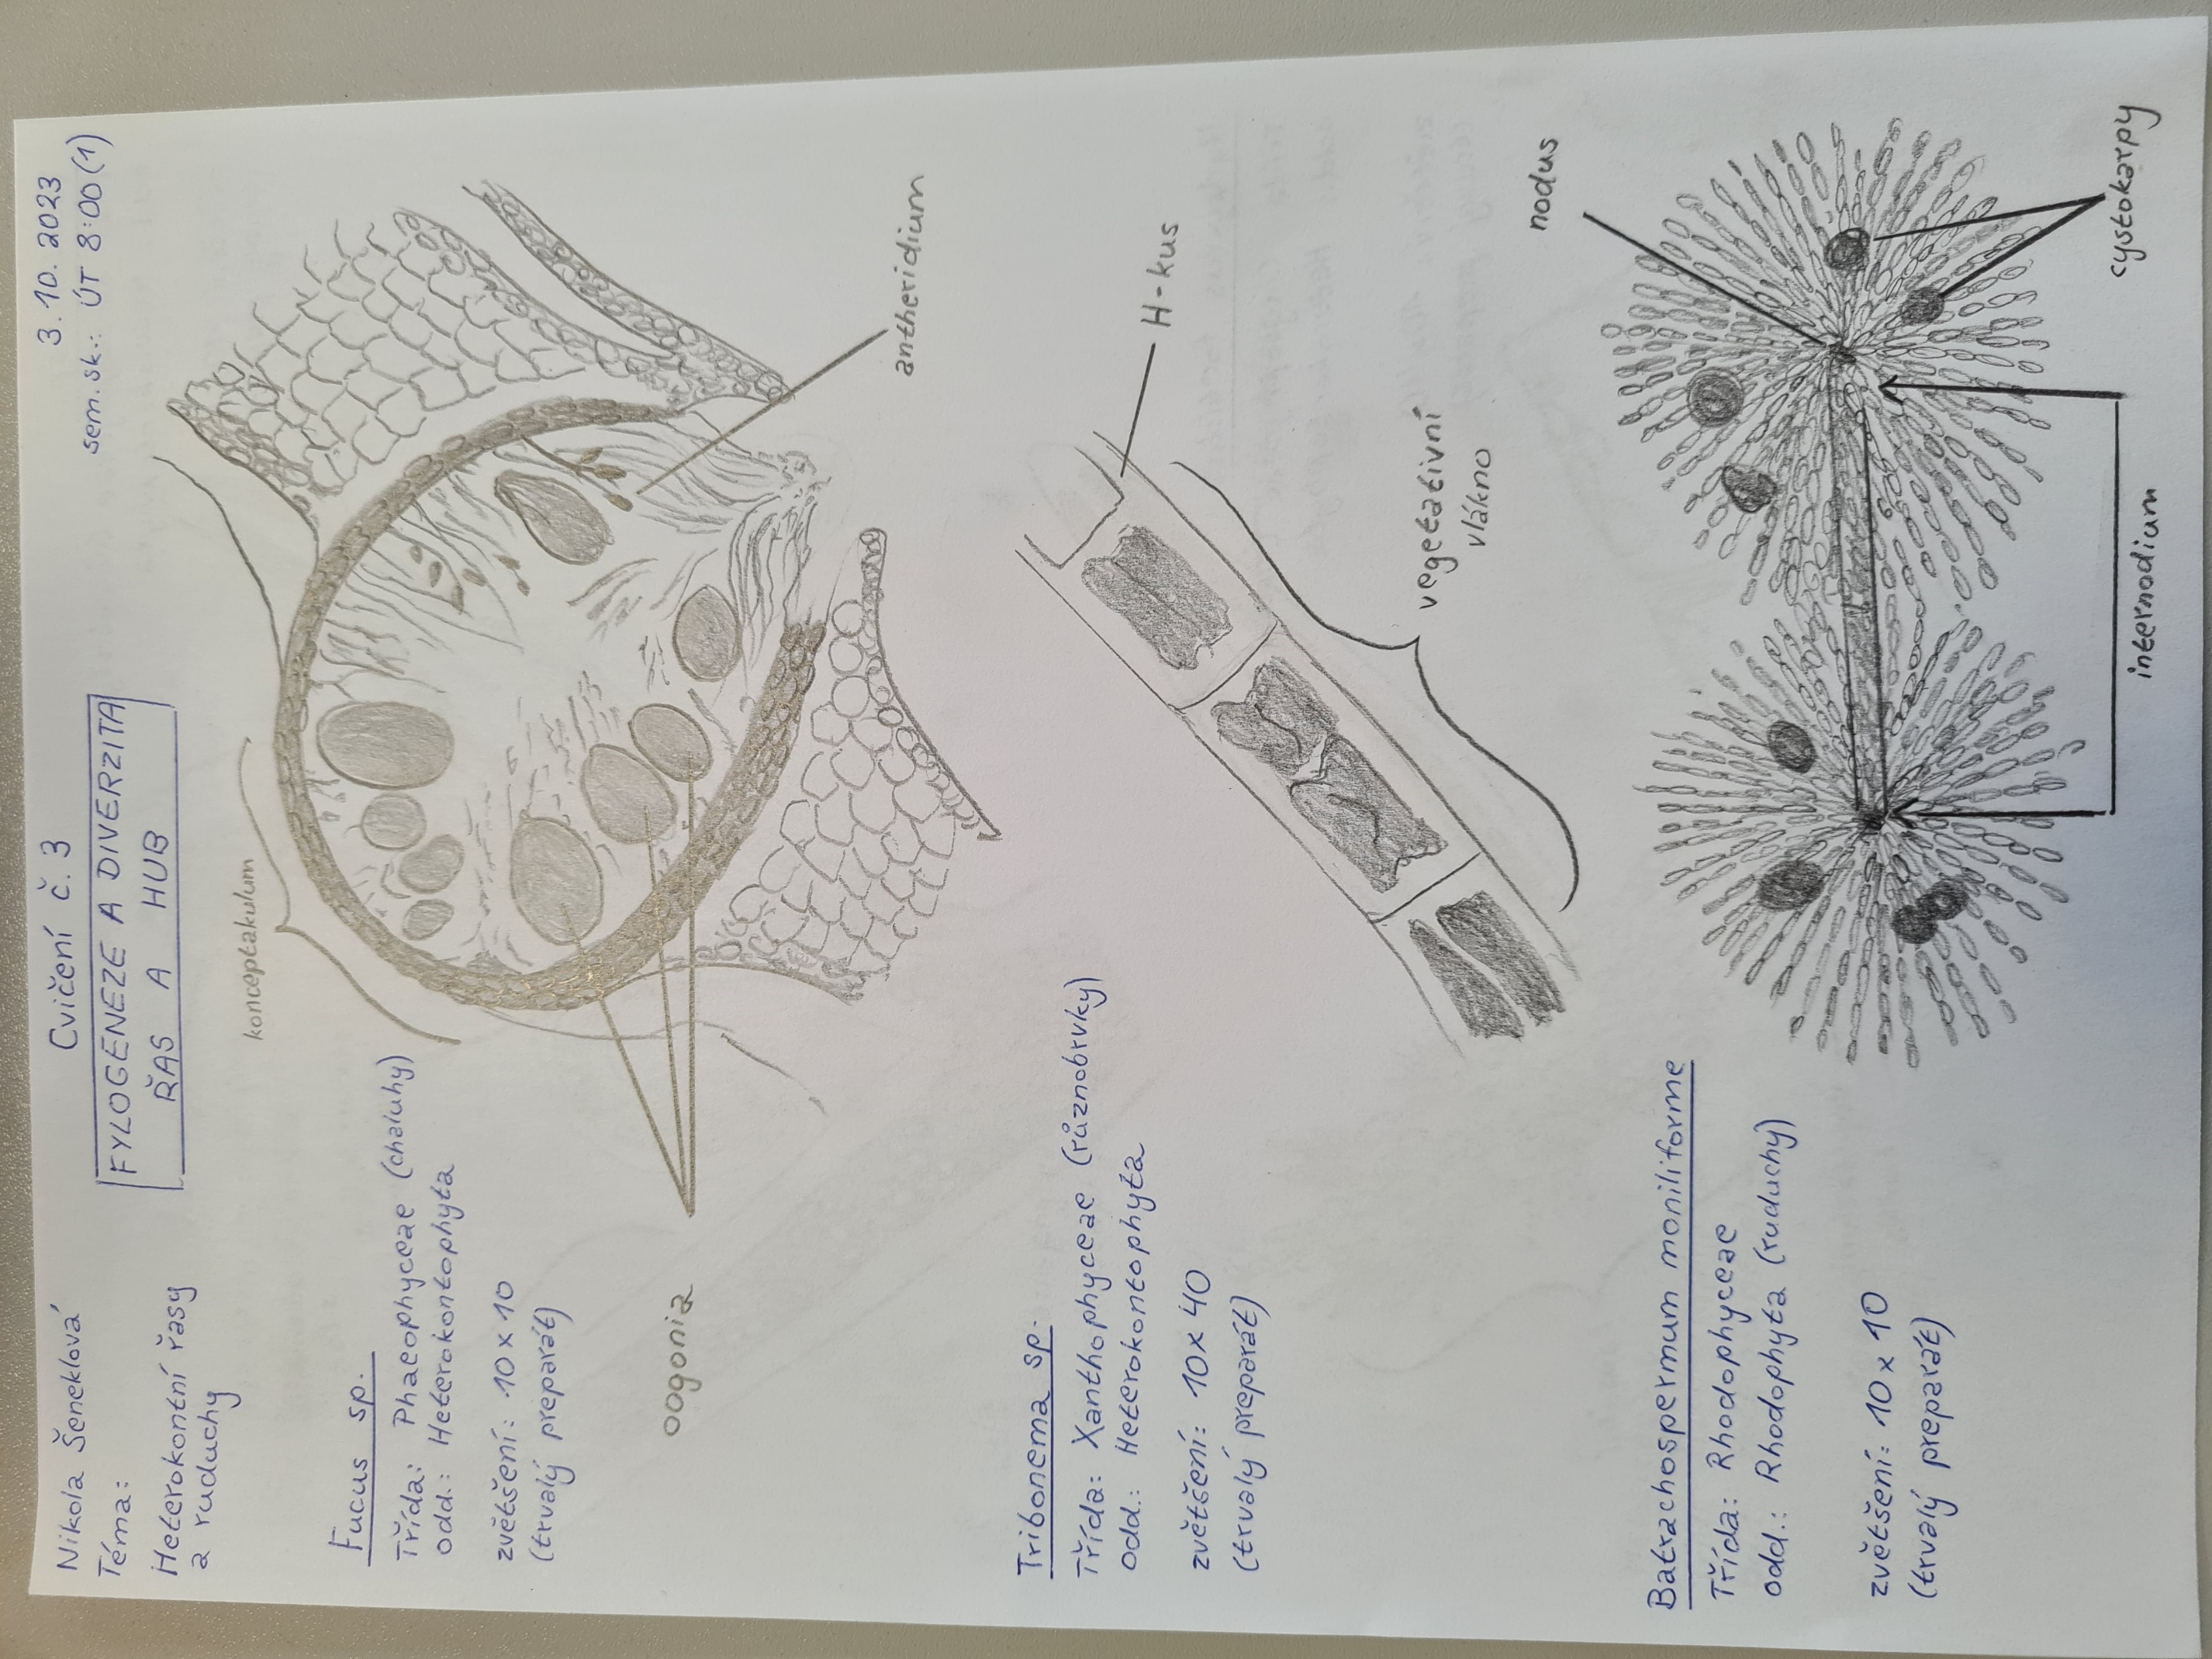 Nikola Šeneklová
Cvičení č. 3
3. 10. 2023
Téma:
FYLOGENEZE A DIVERZITA
ŘAS A HUB
sem.sk.: ÚT 8:00 (1)
Heterokontní řasy
a ruduchy
Fucus sp.
Třída: Phaeophyceae (chaluhy)
odd.: Heterokontophyta
zvětšení: 10 x 10
(trvalý preparát)
konceptakulum
antheridium
oogonia
Tribonema sp.
Třída: Xanthophyceae (různobrvky)
odd.: Heterokontophyta
zvětšení: 10x 40
(trvalý preparát)
H-kus
vegetativní
vlákno
Batrachospermum moniliforme
Třída: Rhodophyceae
odd.: Rhodophyta (ruduchy)
zvětšení: 10 x 10
(trvalý preparát)
nodus
cystokarpy
internodium